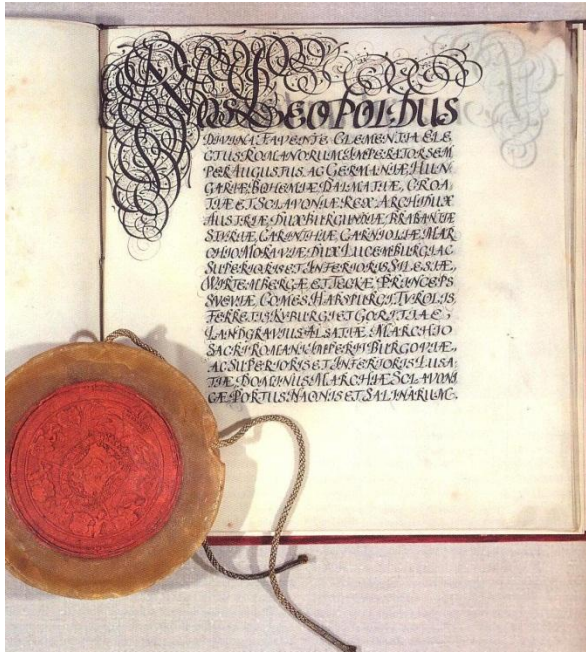 NOS LEOPOLDUS
DIVINA FAVENTE CLEMENTIA ELE
CTUS ROMANORUM IMPERATOR SEM
PER AUGUSTUS, AC GERMANIÆ, HUN
GARIÆ, BOHEMIÆ, DALMATIÆ, CROA
TIÆ ET SCLAVONIÆ REX, ARCHIDUX
AUSTRIÆ, DUX BURGUNDIÆ, BRABANTIÆ
STIRIÆ, CARINTHIÆ, CARNIOLIÆ, MAR
CHIO MORAVIÆ, DUX LUCEMBURGI, AC
SUPERIORIS ET INFERIORIS SILESIÆ,
WIRTEMBERGÆ, ET TECKÆ, PRINCEPS
SVEVIÆ, COMES HABSPURGI, TYROLIS
FERRETIS, KYBURGI ET GORITIÆ
LANDGRAVIUS ALSATIÆ, MARCHIO
SACRI ROMANI IMPERII BURGOVIÆ,
AC SUPERIORIS ET INFERIORIS LUSA
TIÆ, DOMINUS MARCHIÆ SCLAVONI
CÆ, PORTUS NAONIS ET SALINARUM